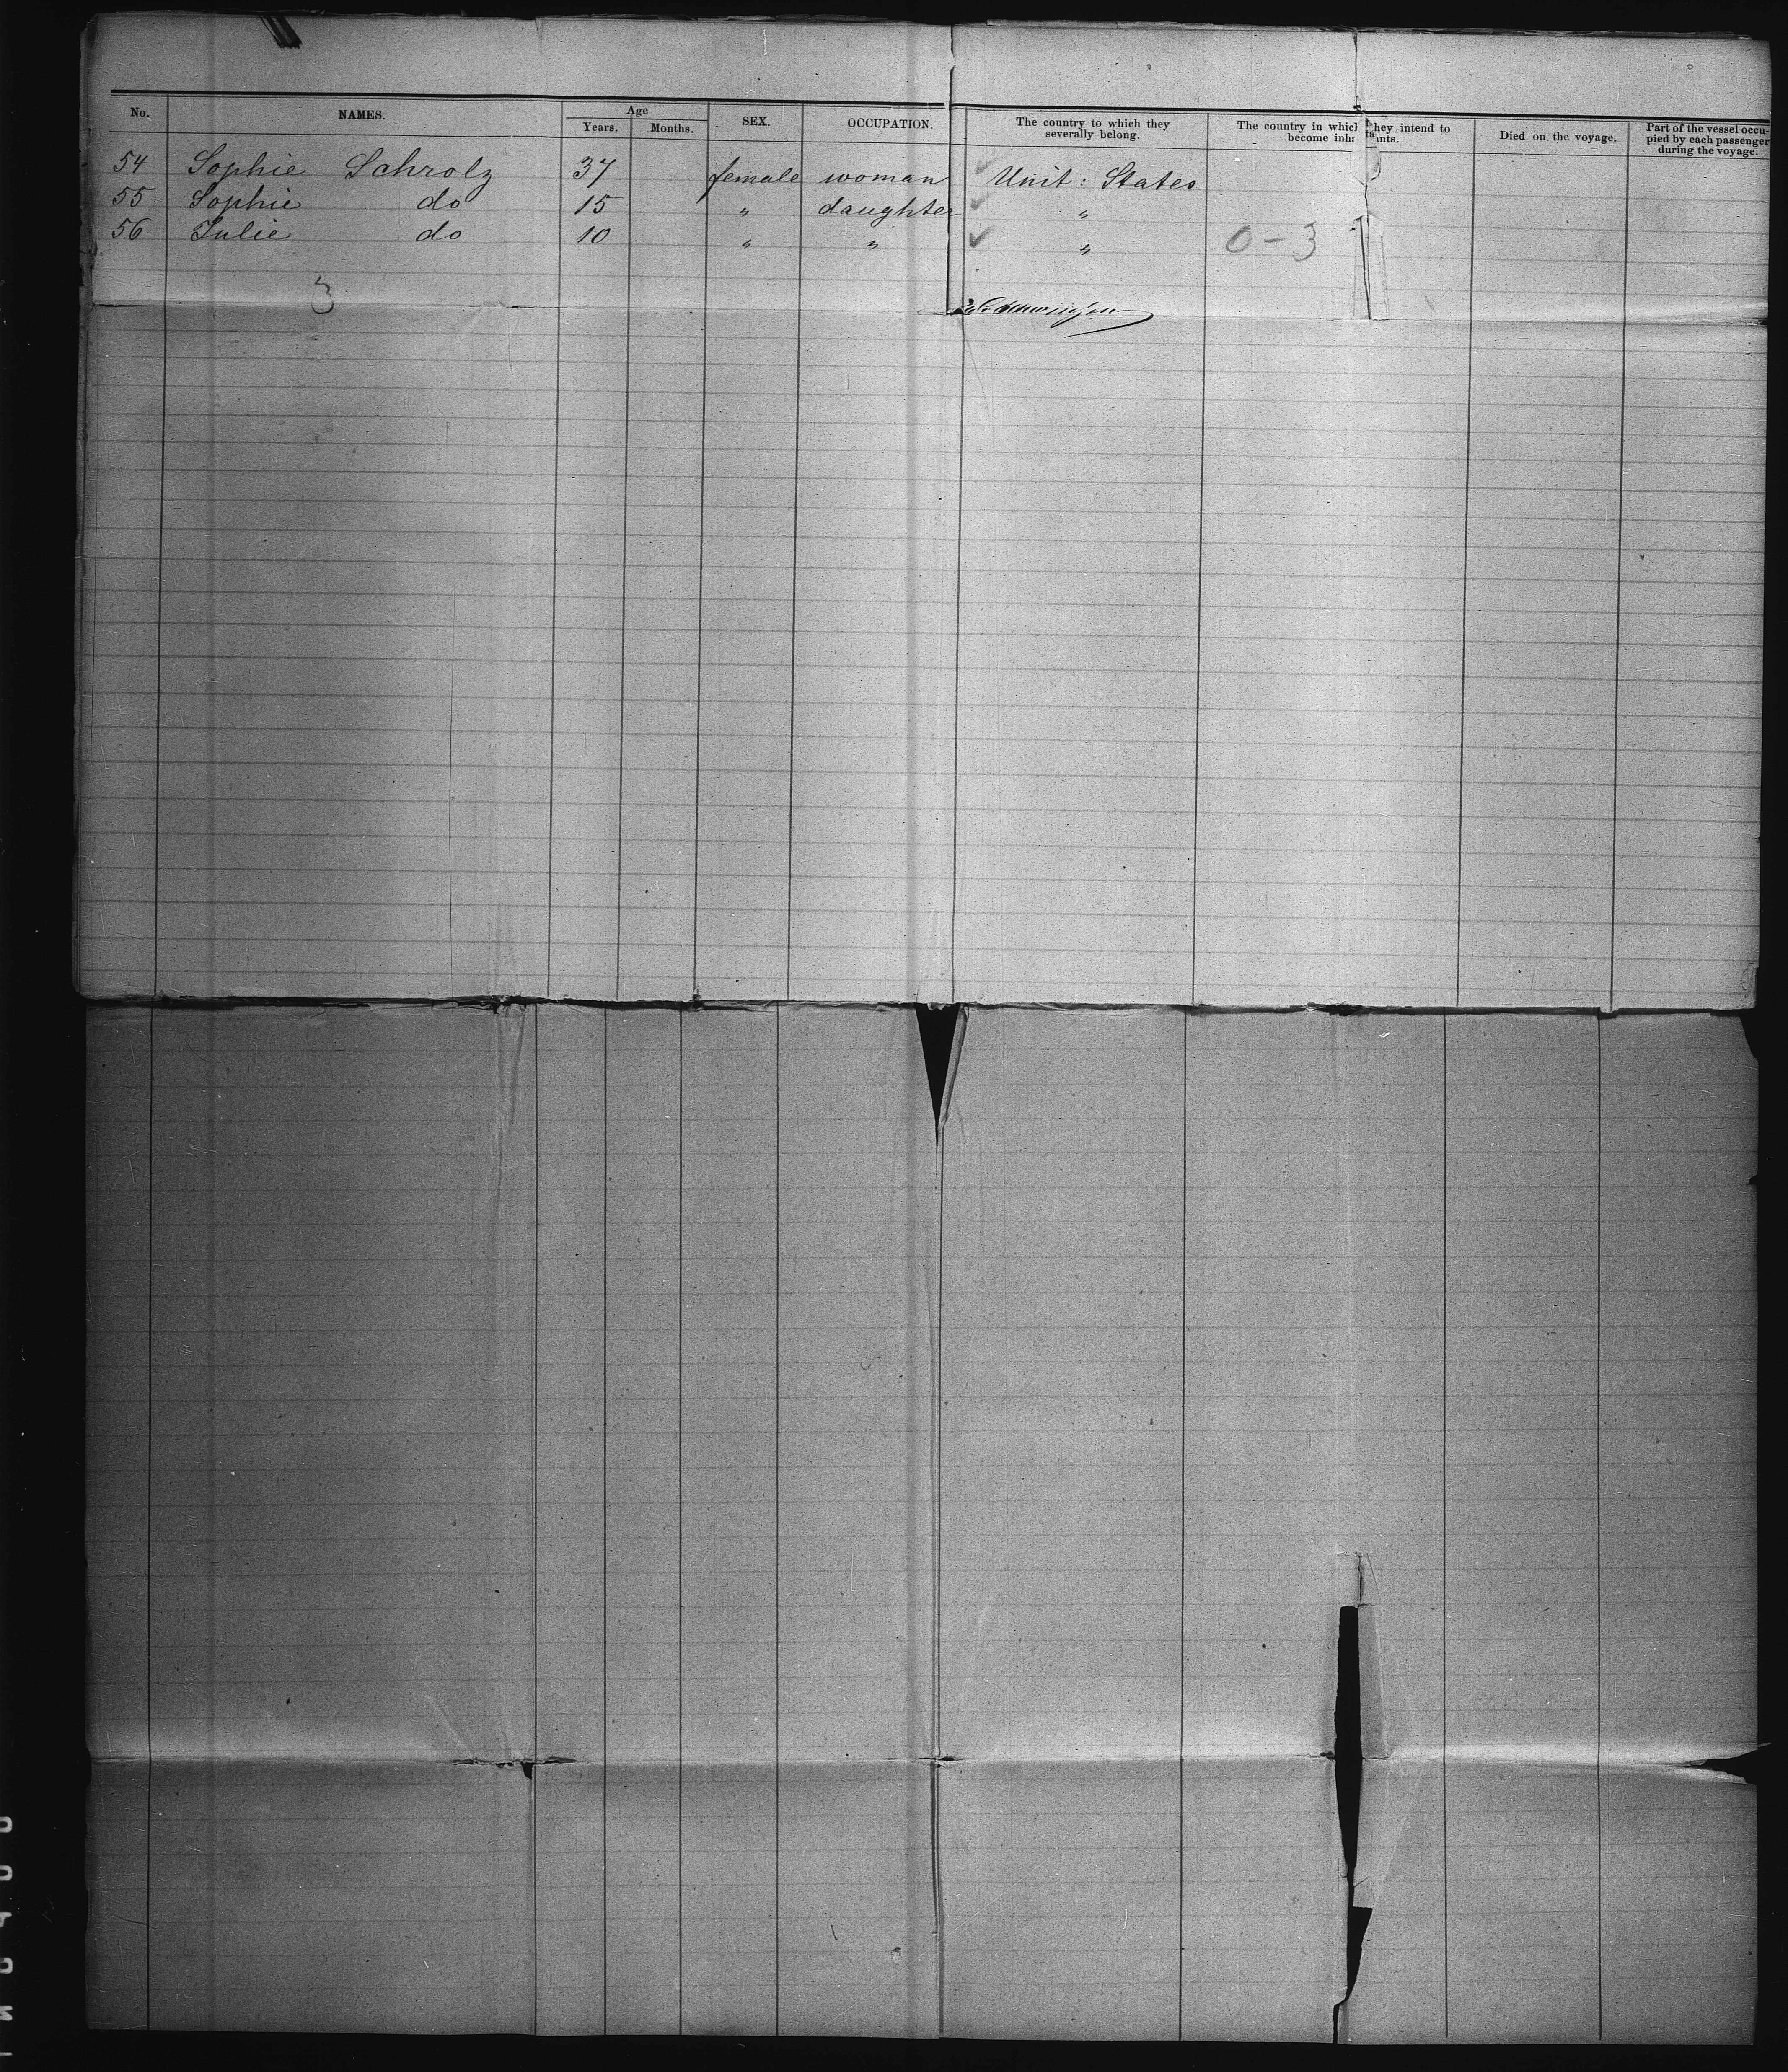 No. NAMES. Age Years. Months. SEX. OCCUPATION. The country to which they severally belong. The country in which they intend to become inhabitants. Died on the voyage. Part of the vessel occupied by each passenger during the voyage.
54 Sophie Schrolz 37 female woman Unit: States
55 Sophie do 15 " daughter "
56 Julie do 10 " " " 0-3
3